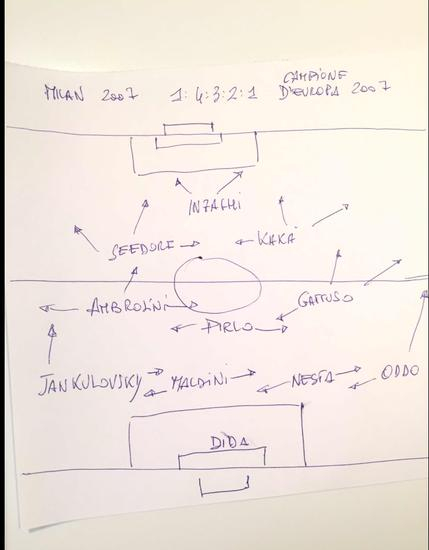 MILAN 2007 1:4:3:2:1 CAMPIONE
D'EUROPA 2007
INZAGHI
SEEDORF KAKÁ
AMBROSINI GATTUSO
PIRLO
JANKULOVSKY MALDINI NESTA ODDO
DIDA